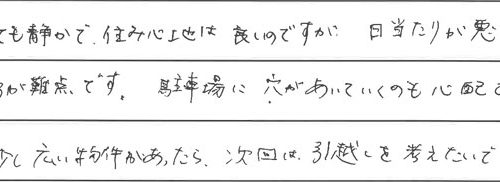 ても静かで、住み心地は良いのですが 日当たりが悪
が難点です。駐車場に穴があいていくのも心配で
少し広い物件があったら、次回は、引越しを考えたいで